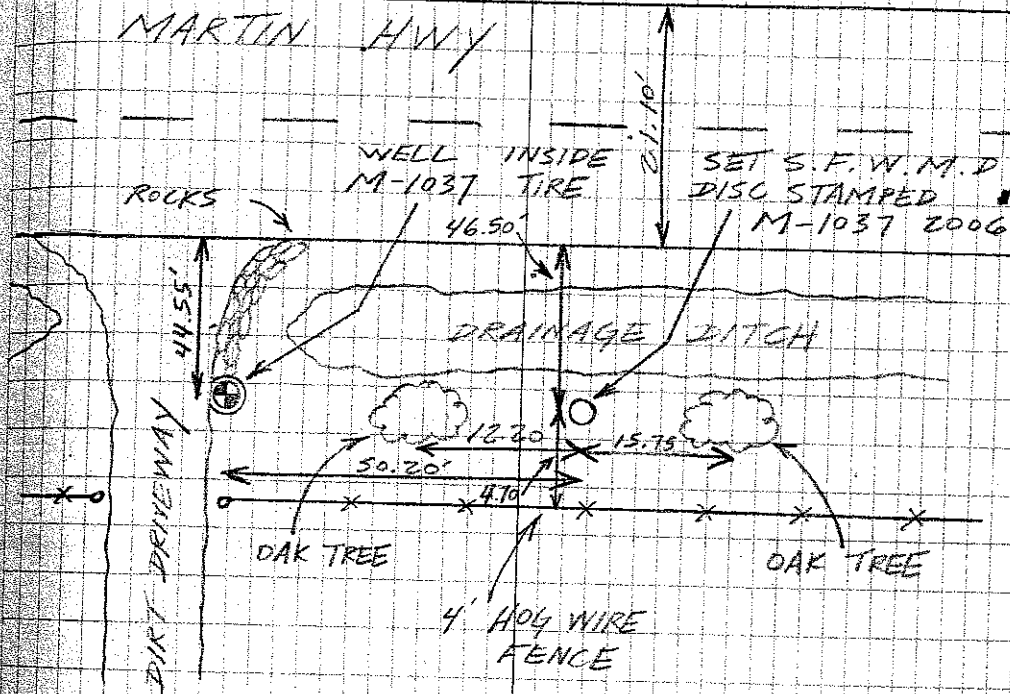 MARTIN HWY
21.10'
WELL INSIDE
M-1037 TIRE
SET S.F.W.M.D
DISC STAMPED
M-1037 2006
ROCKS
46.50'
44.55'
DRAINAGE DITCH
12.20
15.75
50.20'
4.70'
DIRT DRIVEWAY
OAK TREE
OAK TREE
4' HOG WIRE
FENCE